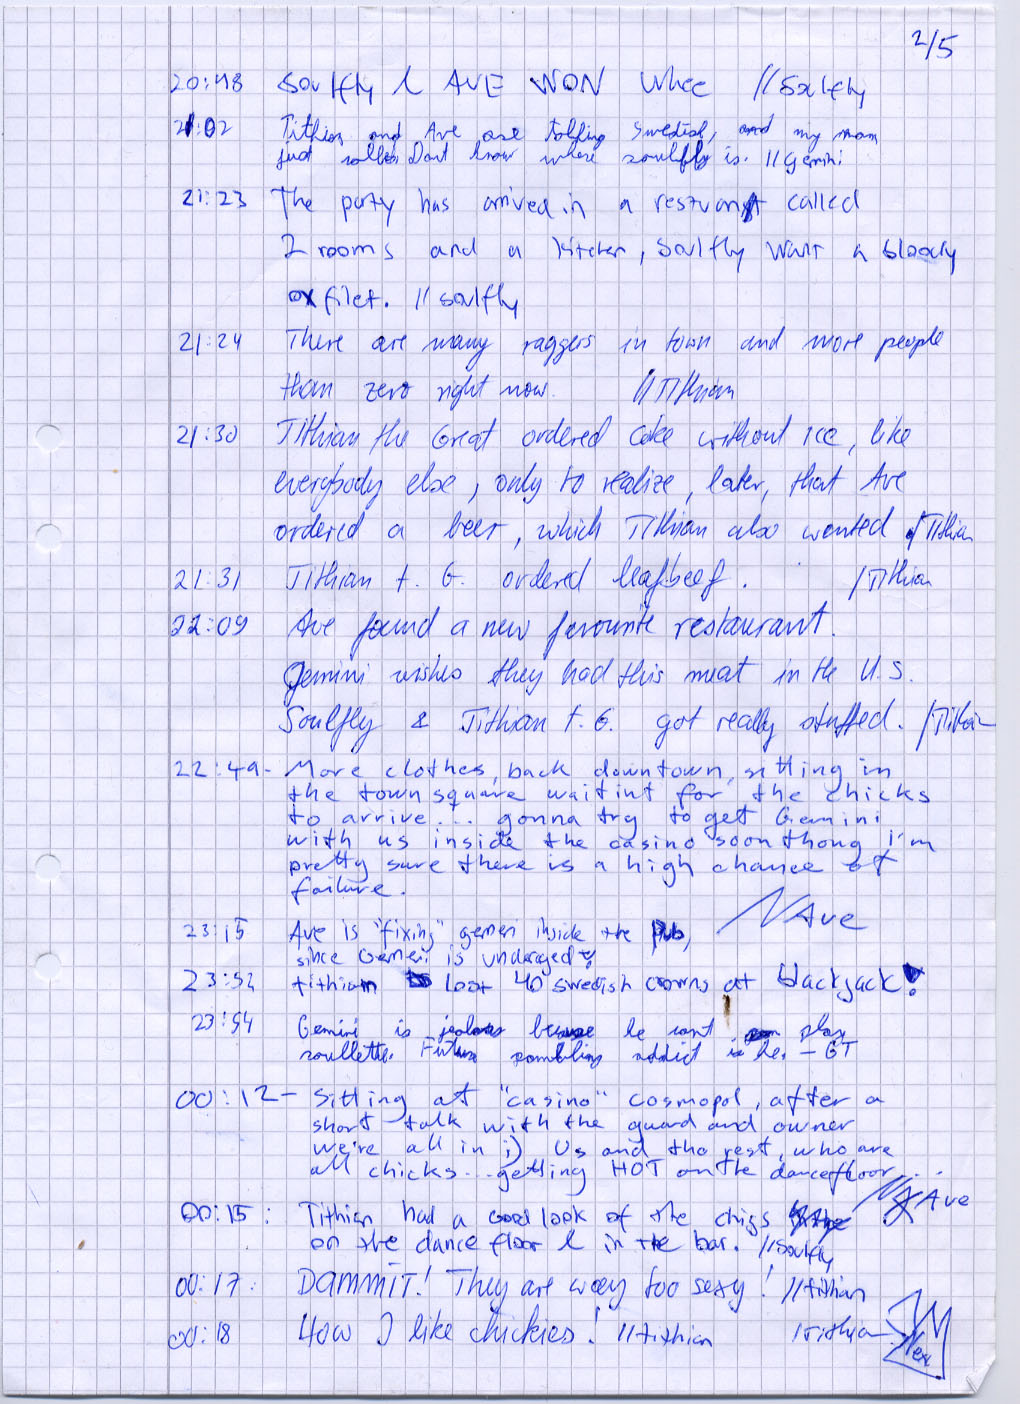 2/5
20:48 Soulfly & AVE WON Whee //Soulfly
21:02 Tithian and Ave are talking Swedish, and my mom
just called. Dont know where soulfly is. //Gemini
21:23 The party has arrived in a resturant called
2 rooms and a kitchen, Soulfly want a bloody
oxfilet. //soulfly
21:24 There are many raggers in town and more people
than zero right now. //Tithian
21:30 Tithian the Great ordered Coke without ice, like
everybody else, only to realize, later, that Ave
ordered a beer, which Tithian also wanted /Tithian
21:31 Tithian t. G. ordered leafbeef. /Tithian
22:09 Ave found a new favourite restaurant.
Gemini wishes they had this meat in the U.S.
Soulfly & Tithian t. G. got really stuffed. /Tithian
22:49- More clothes, back downtown, sitting in
the town square waitint for the chicks
to arrive... gonna try to get Gemini
with us inside the casino soon thong I'm
pretty sure there is a high chance of
failure.
//Ave
23:15 Ave is "fixing" gemeni inside the Pub,
since Gemeni is underaged!
23:52 tithian lost 40 swedish crowns at blackjack!
23:54 Gemini is jealous because he cant play
roullette. Future gambling addict is he. - GT
00:12- Sitting at "casino" cosmopol, after a
short talk with the guard and owner
we're all in ;) Us and the rest, who are
all chicks... getting HOT on the dancefloor...
//Ave
00:15: Tithian had a good look of the chigs
on the dance floor & in the bar. //Soulfly
00:17: DAMMIT! They are way too sexy! //tithian
00:18 How I like chickies! //tithian /Tithian